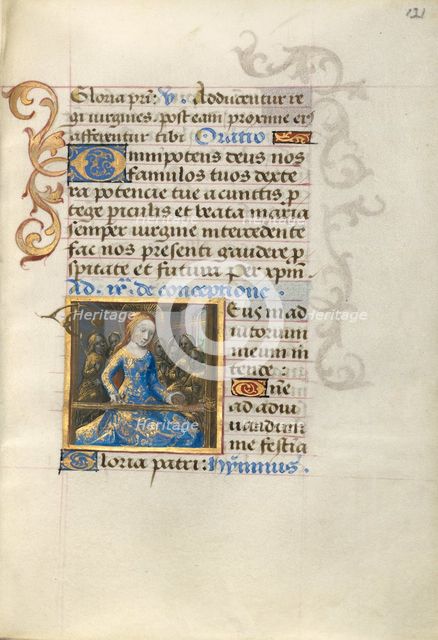 121
Gloria pri: V. Adducentur re
gi uirgines post eam proxime ei
afferentur tibi Oratio
Omnipotens deus nos
famulos tuos dexte
ra potencie tue a cunctis p
tege piculis et beata maria
semper uirgine intercedente
fac nos presenti gaudere p
spitate et futura per xpm.
Ad. ix. de conceptione.
Eus in ad
iutorium
meum in
tende:
Dne
ad adiu
uandum
me festia
Gloria patri: Hymnus.
Heritage Images
Heritage Images
Heritage Images
Heritage Images
Heritage Images
Heritage Images